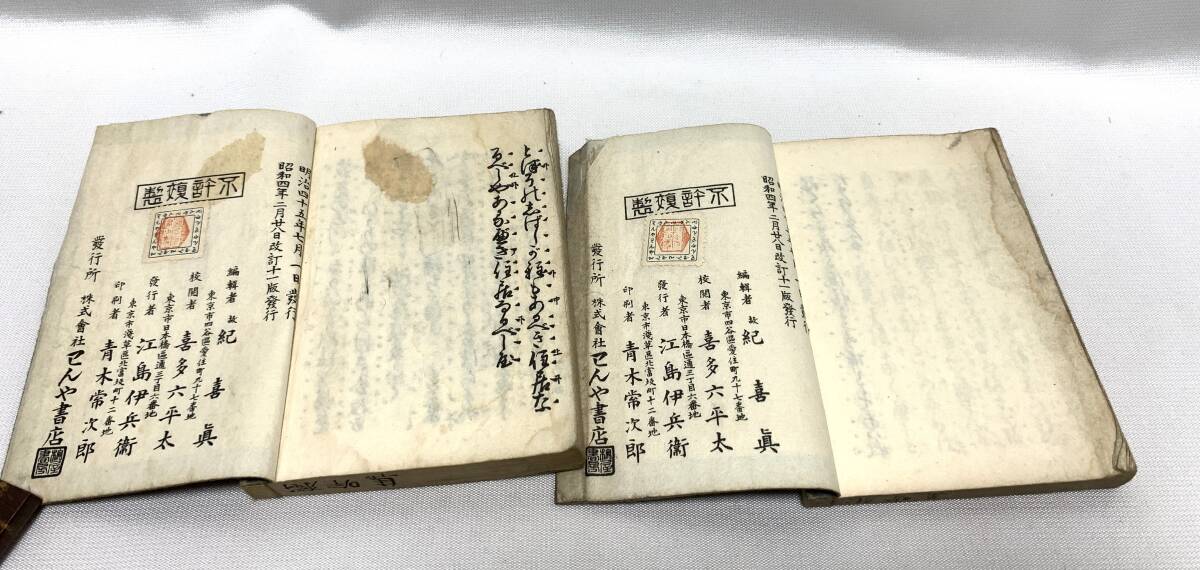 明治四十五年七月一日發行
昭和四年二月廿八日改訂十一版發行
不許複製
編輯者 故 紀喜眞
東京市四谷區愛住町九十七番地
校閲者 喜多六平太
東京市日本橋區通三丁目六番地
發行者 江島伊兵衛
東京市淺草區北富坂町十二番地
印刷者 青木常次郎
發行所 株式會社 わんや書店
昭和四年二月廿八日改訂十一版發行
不許複製
編輯者 故 紀喜眞
東京市四谷區愛住町九十七番地
校閲者 喜多六平太
東京市日本橋區通三丁目六番地
發行者 江島伊兵衛
東京市淺草區北富坂町十二番地
印刷者 青木常次郎
發行所 株式會社 わんや書店